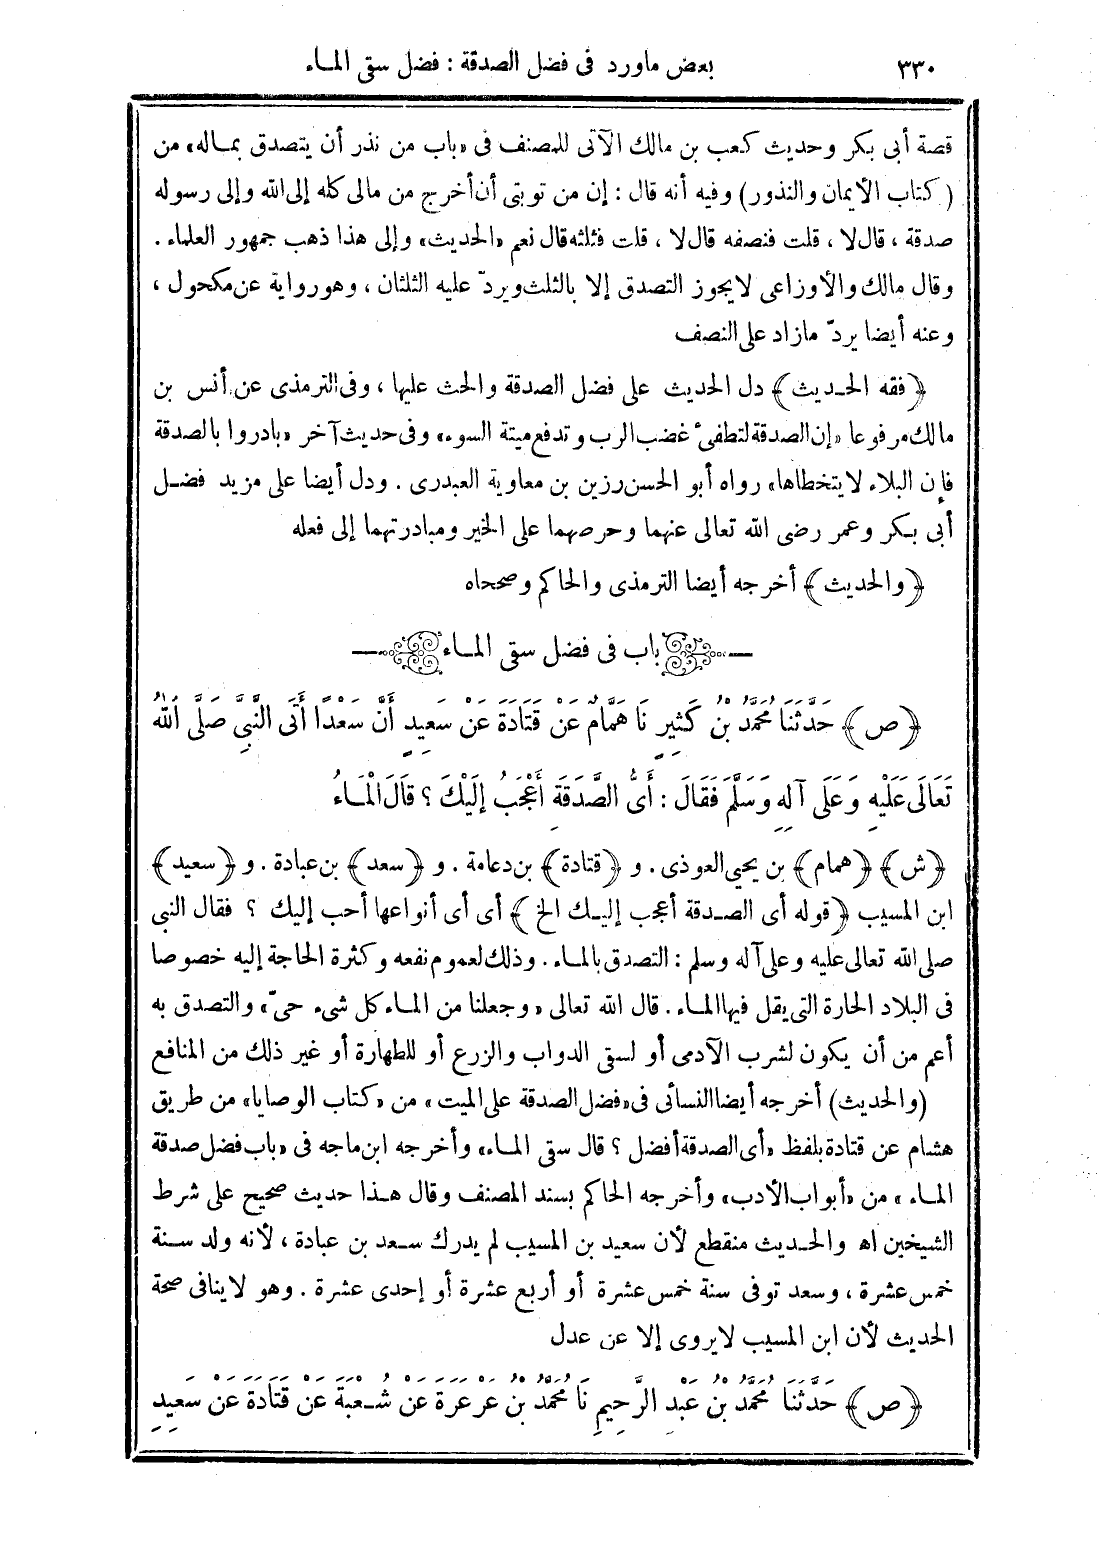 ٣٣٠
بعض ماورد فى فضل الصدقة : فضل سقى المـاء
قصة أبى بكر وحديث كعب بن مالك الآتى للمصنف فى «باب من نذر أن يتصدق بمـاله» من
(كتاب الأيمان والنذور) وفيه أنه قال : إن من توبتى أن أخرج من مالى كله إلى الله وإلى رسوله
صدقة ، قال لا ، قلت فنصفه قال لا ، قلت فثلثه قال نعم «الحديث» وإلى هذا ذهب جمهور العلماء .
وقال مالك والأوزاعى لايجوز التصدق إلا بالثلث ويردّ عليه الثلثان ، وهو رواية عن مكحول ،
وعنه أيضا يردّ مازاد على النصف
﴿فقه الحـديث﴾ دل الحديث على فضل الصدقة والحث عليها ، وفى الترمذى عن أنس بن
مالك مرفوعا «إن الصدقة لتطفئ غضب الرب وتدفع ميتة السوء» وفى حديث آخر «بادروا بالصدقة
فإن البلاء لايتخطاها» رواه أبو الحسن رزين بن معاوية العبدرى . ودل أيضا على مزيد فضـل
أبى بـكر وعمر رضى الله تعالى عنهما وحرصهما على الخير ومبادرتهما إلى فعله
﴿والحديث﴾ أخرجه أيضا الترمذى والحاكم وصححاه
باب فى فضل سقى المـاء
﴿ص﴾ حَدَّثَنَا مُحَمَّدُ بْنُ كَثِيرٍ نَا هَمَّامٌ عَنْ قَتَادَةَ عَنْ سَعِيدٍ أَنَّ سَعْدًا أَتَى النَّبِىَّ صَلَّى اللهُ
تَعَالَى عَلَيْهِ وَعَلَى آلِهِ وَسَلَّمَ فَقَالَ : أَىُّ الصَّدَقَةِ أَعْجَبُ إِلَيْكَ ؟ قَالَ الْمَـاءُ
﴿ش﴾ ﴿همام﴾ بن يحيى العوذى . و ﴿قتادة﴾ بن دعامة . و ﴿سعد﴾ بن عبادة . و ﴿سعيد﴾
ابن المسيب ﴿قوله أى الصـدقة أعجب إليـك الخ﴾ أى أى أنواعها أحب إليك ؟ فقال النبى
صلى الله تعالى عليه وعلى آله وسلم : التصدق بالمـاء . وذلك لعموم نفعه وكثرة الحاجة إليه خصوصا
فى البلاد الحارة التى يقل فيها المـاء . قال الله تعالى «وجعلنا من المـاء كل شىء حىّ» والتصدق به
أعم من أن يكون لشرب الآدمى أو لسقى الدواب والزرع أو للطهارة أو غير ذلك من المنافع
(والحديث) أخرجه أيضا النسائى فى «فضل الصدقة على الميت» من «كتاب الوصايا» من طريق
هشام عن قتادة بلفظ «أى الصدقة أفضل ؟ قال سقى المـاء» وأخرجه ابن ماجه فى «باب فضل صدقة
المـاء» من «أبواب الأدب» وأخرجه الحاكم بسند المصنف وقال هـذا حديث صحيح على شرط
الشيخين اه والحـديث منقطع لأن سعيد بن المسيب لم يدرك سـعد بن عبادة ، لأنه ولد سـنة
خمس عشرة ، وسعد توفى سنة خمس عشرة أو أربع عشرة أو إحدى عشرة . وهو لاينافى صحة
الحديث لأن ابن المسيب لايروى إلا عن عدل
﴿ص﴾ حَدَّثَنَا مُحَمَّدُ بْنُ عَبْدِ الرَّحِيمِ نَا مُحَمَّدُ بْنُ عَرْعَرَةَ عَنْ شُـعْبَةَ عَنْ قَتَادَةَ عَنْ سَعِيدٍ